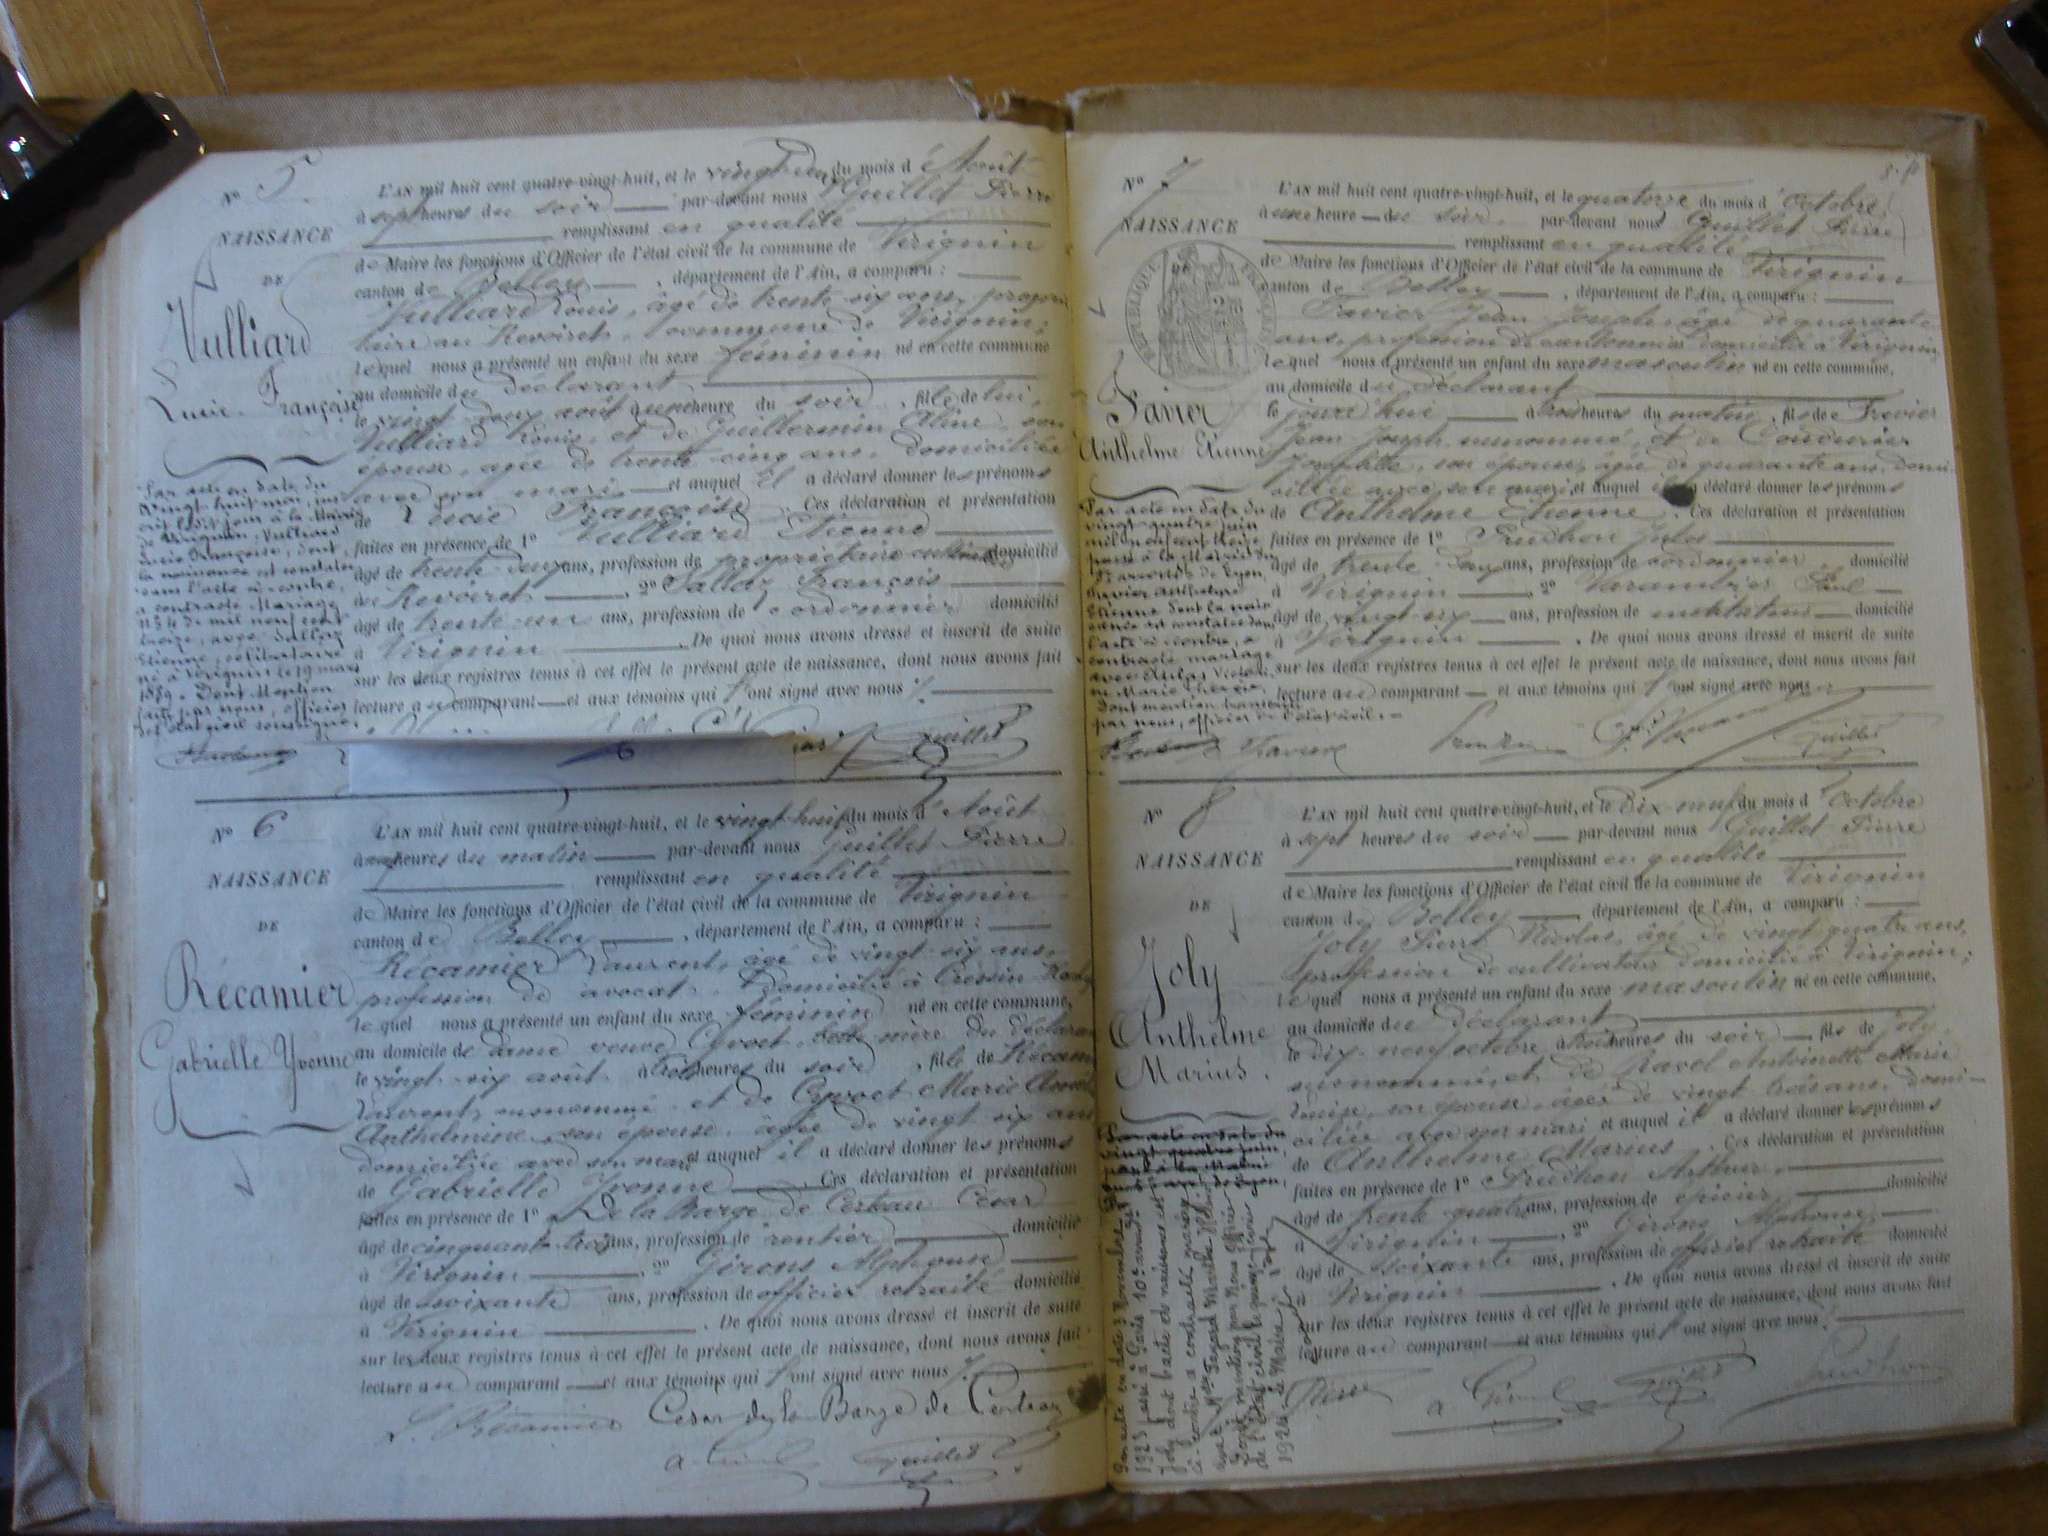 N° 5.
NAISSANCE
DE
Vulliard
Lucie Françoise
L'AN mil huit cent quatre-vingt-huit, et le vingt deux du mois d'Août
à sept heures du soir par-devant nous Guillet Pierre
remplissant en qualité
de Maire les fonctions d'Officier de l'état civil de la commune de Virignin
canton de Belley, département de l'Ain, a comparu :
Vulliard Louis, âgé de trente six ans, propri
taire au Revoiret, commune de Virignin;
lequel nous a présenté un enfant du sexe féminin né en cette commune
au domicile du déclarant
le vingt deux août à une heure du soir, fille de lui,
Vulliard Louis, et de Guillermin Aline, son
épouse, âgée de trente cinq ans, domiciliée
avec son mari et auquel il a déclaré donner les prénoms
de Lucie Françoise. Ces déclaration et présentation
faites en présence de 1° Vulliard Etienne
âgé de trente deux ans, profession de propriétaire cultivateur domicilié
au Revoiret, 2° Sallaz François
âgé de trente un ans, profession de cordonnier domicilié
à Virignin. De quoi nous avons dressé et inscrit de suite
sur les deux registres tenus à cet effet le présent acte de naissance, dont nous avons fait
lecture au comparant et aux témoins qui l'ont signé avec nous
Par acte en date du
vingt huit mai, mil
à la Mairie
de Virignin, Vulliard
Lucie Françoise, dont
la naissance est constatée
dans l'acte ci-contre,
a contracté Mariage
n° 4 de mil neuf cent
treize, avec Sallaz
Etienne, célibataire
né à Virignin le 19 mars
1889. Dont Mention
faite par nous, officier
de l'état civil soussigné.
Guillet
6
N° 6
NAISSANCE
DE
Récamier
Gabrielle Yvonne
L'AN mil huit cent quatre-vingt-huit, et le vingt-huit du mois d'Août
à heures du matin par-devant nous Guillet Pierre
remplissant en qualité
de Maire les fonctions d'Officier de l'état civil de la commune de Virignin
canton de Belley, département de l'Ain, a comparu :
Récamier Laurent, âgé de vingt six ans,
profession de avocat, domicilié à Cressin
lequel nous a présenté un enfant du sexe féminin né en cette commune,
au domicile de dame veuve Cyvoct, belle mère du déclarant
le vingt-six août à trois heures du soir, fille de Récamier
Laurent, susnommé et de Cyvoct Marie
Anthelmine son épouse, âgée de vingt six ans
domiciliée avec son mari et auquel il a déclaré donner les prénoms
de Gabrielle Yvonne. Ces déclaration et présentation
faites en présence de 1° De la Barge de Certeau César
âgé de cinquante trois ans, profession de rentier domicilié
à Virignin, 2° Girons Alphonse
âgé de soixante ans, profession de officier retraité domicilié
à Virignin. De quoi nous avons dressé et inscrit de suite
sur les deux registres tenus à cet effet le présent acte de naissance, dont nous avons fait
lecture au comparant et aux témoins qui l'ont signé avec nous
L. Récamier César de la Barge de Certeau
Guillet
N° 7
NAISSANCE
RÉPUBLIQUE FRANÇAISE
Favier
Anthelme Etienne
L'AN mil huit cent quatre-vingt-huit, et le quatorze du mois d'Octobre
à une heure du soir, par-devant nous Guillet Pierre
remplissant en qualité
de Maire les fonctions d'Officier de l'état civil de la commune de Virignin
canton de Belley, département de l'Ain, a comparu :
Favier Jean Joseph, âgé de quarante
ans, profession de cantonnier domicilié à Virignin
lequel nous a présenté un enfant du sexe masculin né en cette commune,
au domicile du déclarant
le jourd'hui à trois heures du matin, fils de Favier
Jean Joseph susnommé, et de Couturier
Josephte, son épouse, âgée de quarante ans, domi
ciliée avec son mari et auquel il a déclaré donner les prénoms
de Anthelme Etienne. Ces déclaration et présentation
faites en présence de 1° Prudhon Jules
âgé de trente deux ans, profession de cordonnier domicilié
à Virignin, 2° Varambier Paul
âgé de vingt-six ans, profession de instituteur domicilié
à Virignin. De quoi nous avons dressé et inscrit de suite
sur les deux registres tenus à cet effet le présent acte de naissance, dont nous avons fait
lecture au comparant et aux témoins qui l'ont signé avec nous
Par acte en date du
vingt quatre juin
mil neuf cent treize
passé à la Mairie du
arrond. de Lyon,
Favier Anthelme
Etienne dont la nais
sance est constatée dans
l'acte ci-contre, a
contracté mariage
avec
Marie
Dont mention transcrite
par nous, officier de l'état civil.
Favier Guillet
N° 8
NAISSANCE
DE
Joly
Anthelme
Marius.
L'AN mil huit cent quatre-vingt-huit, et le Dix neuf du mois d'Octobre
à sept heures du soir par-devant nous Guillet Pierre
remplissant en qualité
de Maire les fonctions d'Officier de l'état civil de la commune de Virignin
canton de Belley, département de l'Ain, a comparu :
Joly Pierre Nicolas, âgé de vingt quatre ans,
profession de cultivateur domicilié à Virignin;
lequel nous a présenté un enfant du sexe masculin né en cette commune,
au domicile du déclarant
le dix-neuf octobre à trois heures du soir fils de Joly
susnommé et de Ravel Antoinette Marie
Louise, son épouse, âgée de vingt trois ans, domi-
ciliée avec son mari et auquel il a déclaré donner les prénoms
de Anthelme Marius. Ces déclaration et présentation
faites en présence de 1° Prudhon Arthur
âgé de trente quatre ans, profession de épicier, domicilié
à Virignin, 2° Girons Alphonse
âgé de soixante ans, profession de officier retraité domicilié
à Virignin. De quoi nous avons dressé et inscrit de suite
sur les deux registres tenus à cet effet le présent acte de naissance, dont nous avons fait
lecture au comparant et aux témoins qui l'ont signé avec nous
Par acte en date du
vingt quatre juin
passé à la Mairie
Par acte en date 3 Novembre
1923 passé à Paris 10e arrond
Joly dont l'acte de naissance est
ci-contre a contracté mariage
avec Marthe
Dont mention par Nous Officier
de l'état civil le quinze janvier
1924 Le Maire
Guillet Prudhon